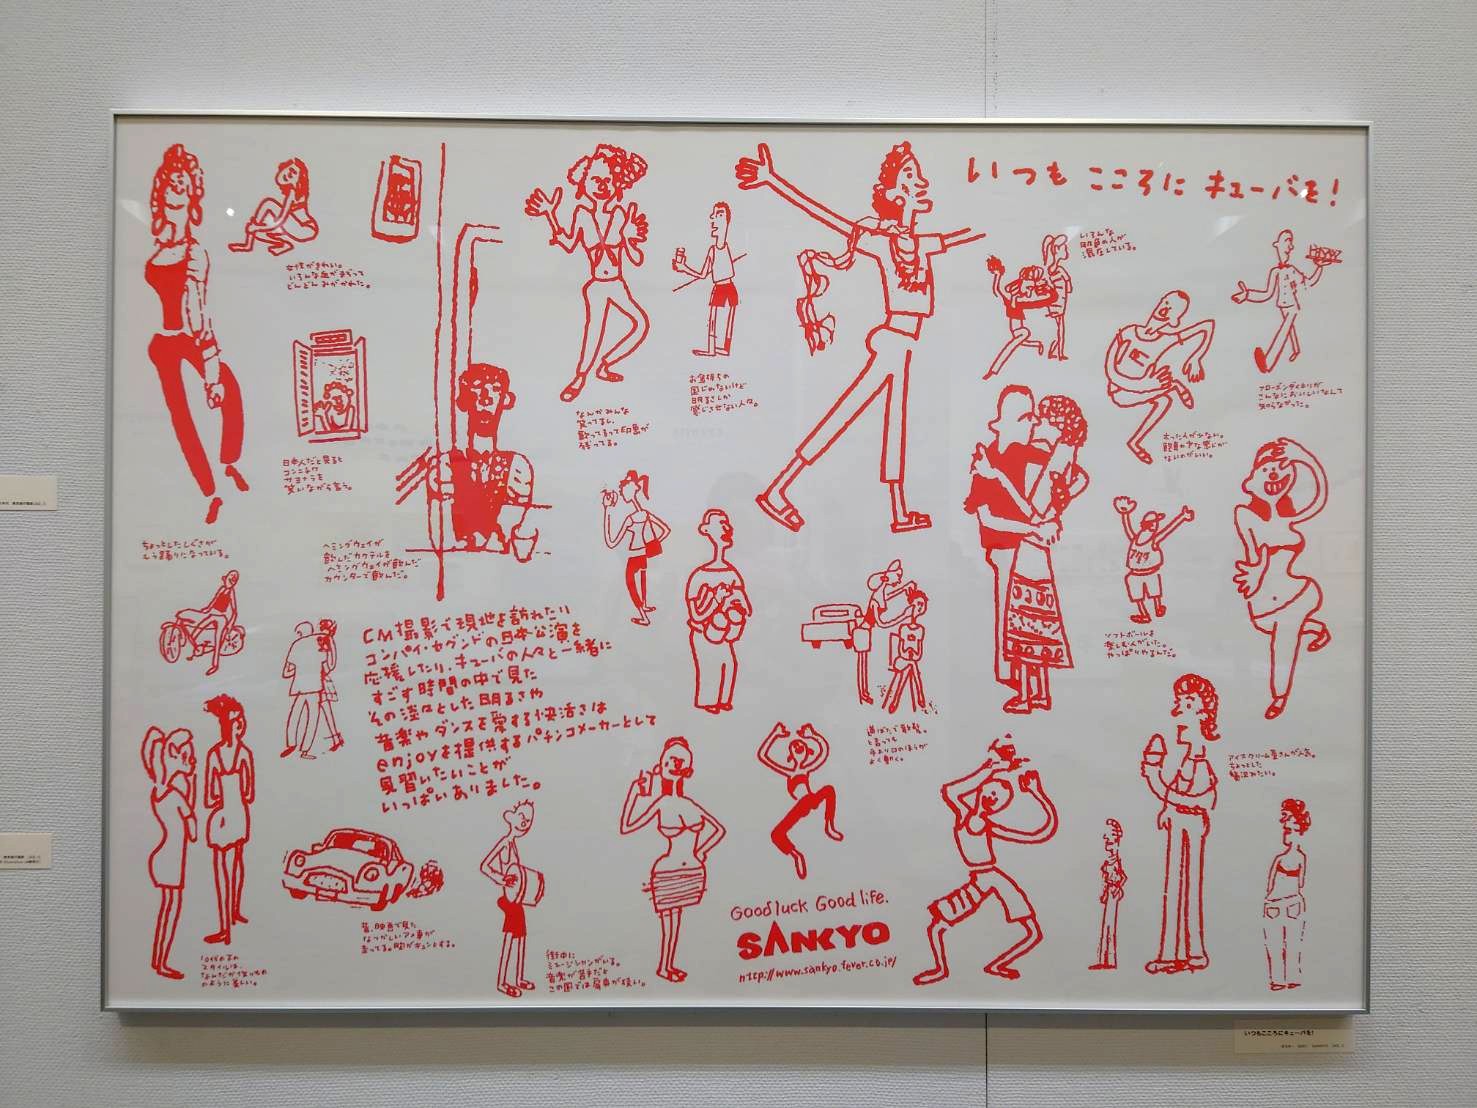 いつも こころに キューバを！
いろんな
肌色の人が
混在している。
女性がきれい。
いろんな血がまざって
どんどんみがかれた。
お金持ちの
感じのないけど
明るさしか
感じさせない人々。
なんかみんな
笑ってるし、
歌ってるって印象が
残ってる。
フローズンダイキリが
こんなにおいしいなんて
知らなかった。
太った人が少ない。
ないのがいい。
日本人だと見ると
コンニチワ
サヨナラを
笑いながら言う。
ちょっとしたしぐさが
もう踊りになっている。
ヘミングウェイが
飲んだカクテルを
ヘミングウェイが飲んだ
カウンターで飲んだ。
CM撮影で現地を訪れたり
コンパイ・セグンドの日本公演を
応援したり、キューバの人々と一緒に
すごす時間の中で見た
その淡々とした明るさや
音楽やダンスを愛する快活さは
enjoyを提供するパチンコメーカーとして
見習いたいことが
いっぱいありました。
ソフトボールを
楽しむ人がいた。
やっぱりやるんだ。
道ばたで散髪。
と言っても
手より口のほうが
よく動く。
アイスクリーム屋さんが人気。
ちょっとした
贅沢みたい。
昔、映画で見た
なつかしいアメ車が
走ってる。胸がキュンとする。
10代の子の
スタイルは、
なんだか作りもの
のように美しい。
街中に
ミュージシャンがいる。
音楽が苦手だと
この国では肩身が狭い。
Good luck Good life.
SANKYO
http://www.sankyo-fever.co.jp/
いつもこころにキューバを!